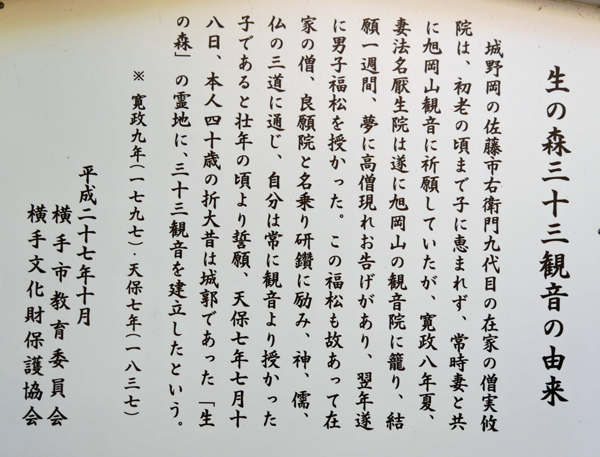 生の森三十三観音の由来
城野岡の佐藤市右衛門九代目の在家の僧実攸
院は、初老の頃まで子に恵まれず、常時妻と共
に旭岡山観音に祈願していたが、寛政八年夏、
妻法名厭生院は遂に旭岡山の観音院に籠り、結
願一週間、夢に高僧現れお告げがあり、翌年遂
に男子福松を授かった。この福松も故あって在
家の僧、良願院と名乗り研鑽に励み、神、儒、
仏の三道に通じ、自分は常に観音より授かった
子であると壮年の頃より誓願、天保七年七月十
八日、本人四十歳の折大昔は城郭であった「生
の森」の霊地に、三十三観音を建立したという。
※ 寛政九年(一七九七)・天保七年(一八三七)
平成二十七年十月
横手市教育委員会
横手文化財保護協会